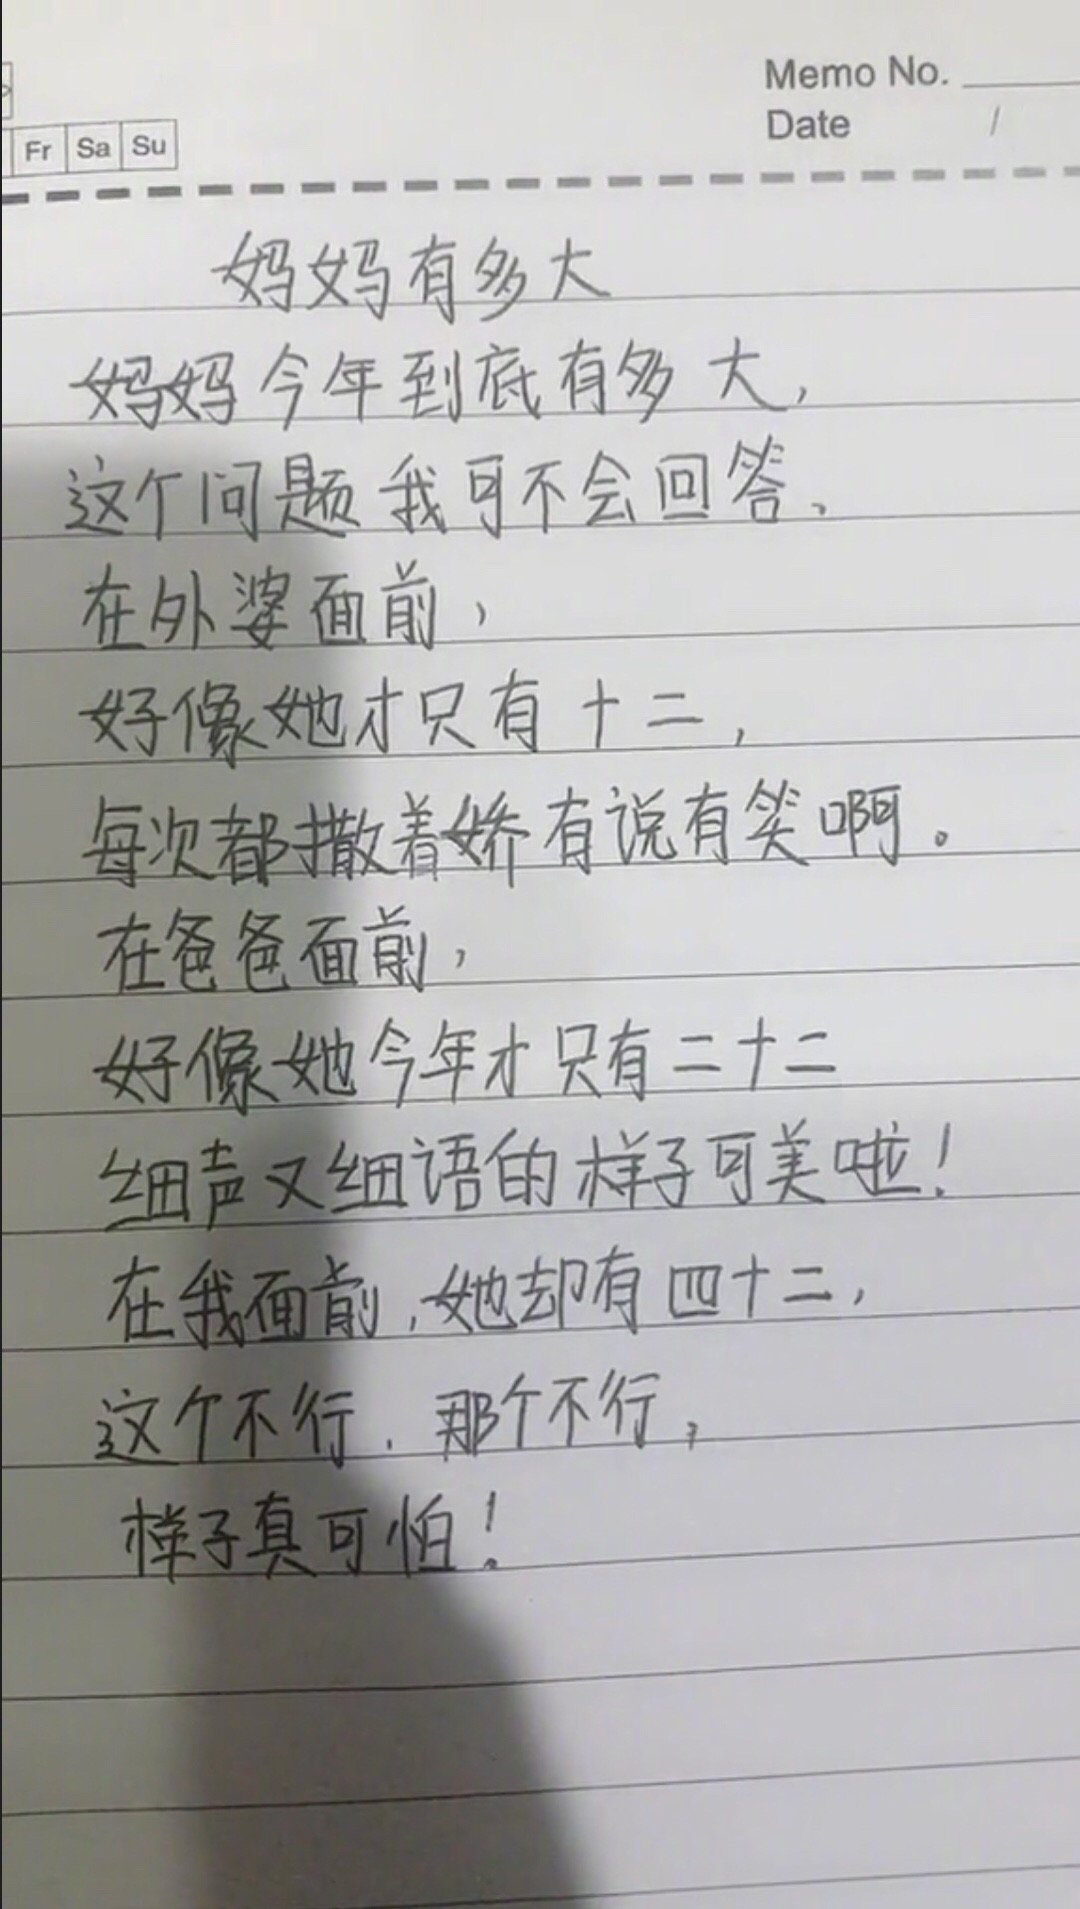 Memo No.
Date /
Fr Sa Su
妈妈有多大
妈妈今年到底有多大,
这个问题我可不会回答、
在外婆面前,
好像她才只有十二,
每次都撒着娇有说有笑啊。
在爸爸面前,
好像她今年才只有二十二
细声又细语的样子可美啦!
在我面前,她却有四十二,
这个不行.那个不行,
样子真可怕!